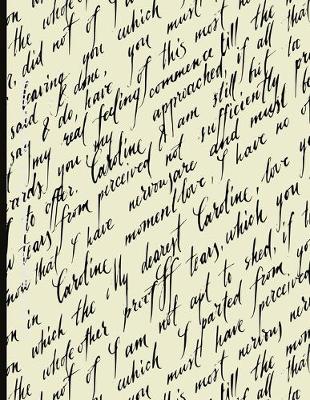 the whole of you which
, did not of I am must
leaving you most
said & done, of this if all
say & do, have feeling commence till the
my real approached, to
wards you my & am still but
to offer. Caroline not sufficiently pr
tears from perceived and must be
now that I have nervous are I have no o
moment love,
Caroline Caroline, love
My dearest tears, which you
in which the proof If to shed, if t
on the whole other not apt from you
the not of I am parted perceived
did you which I must have nerv
you must most nervous
of this the mom